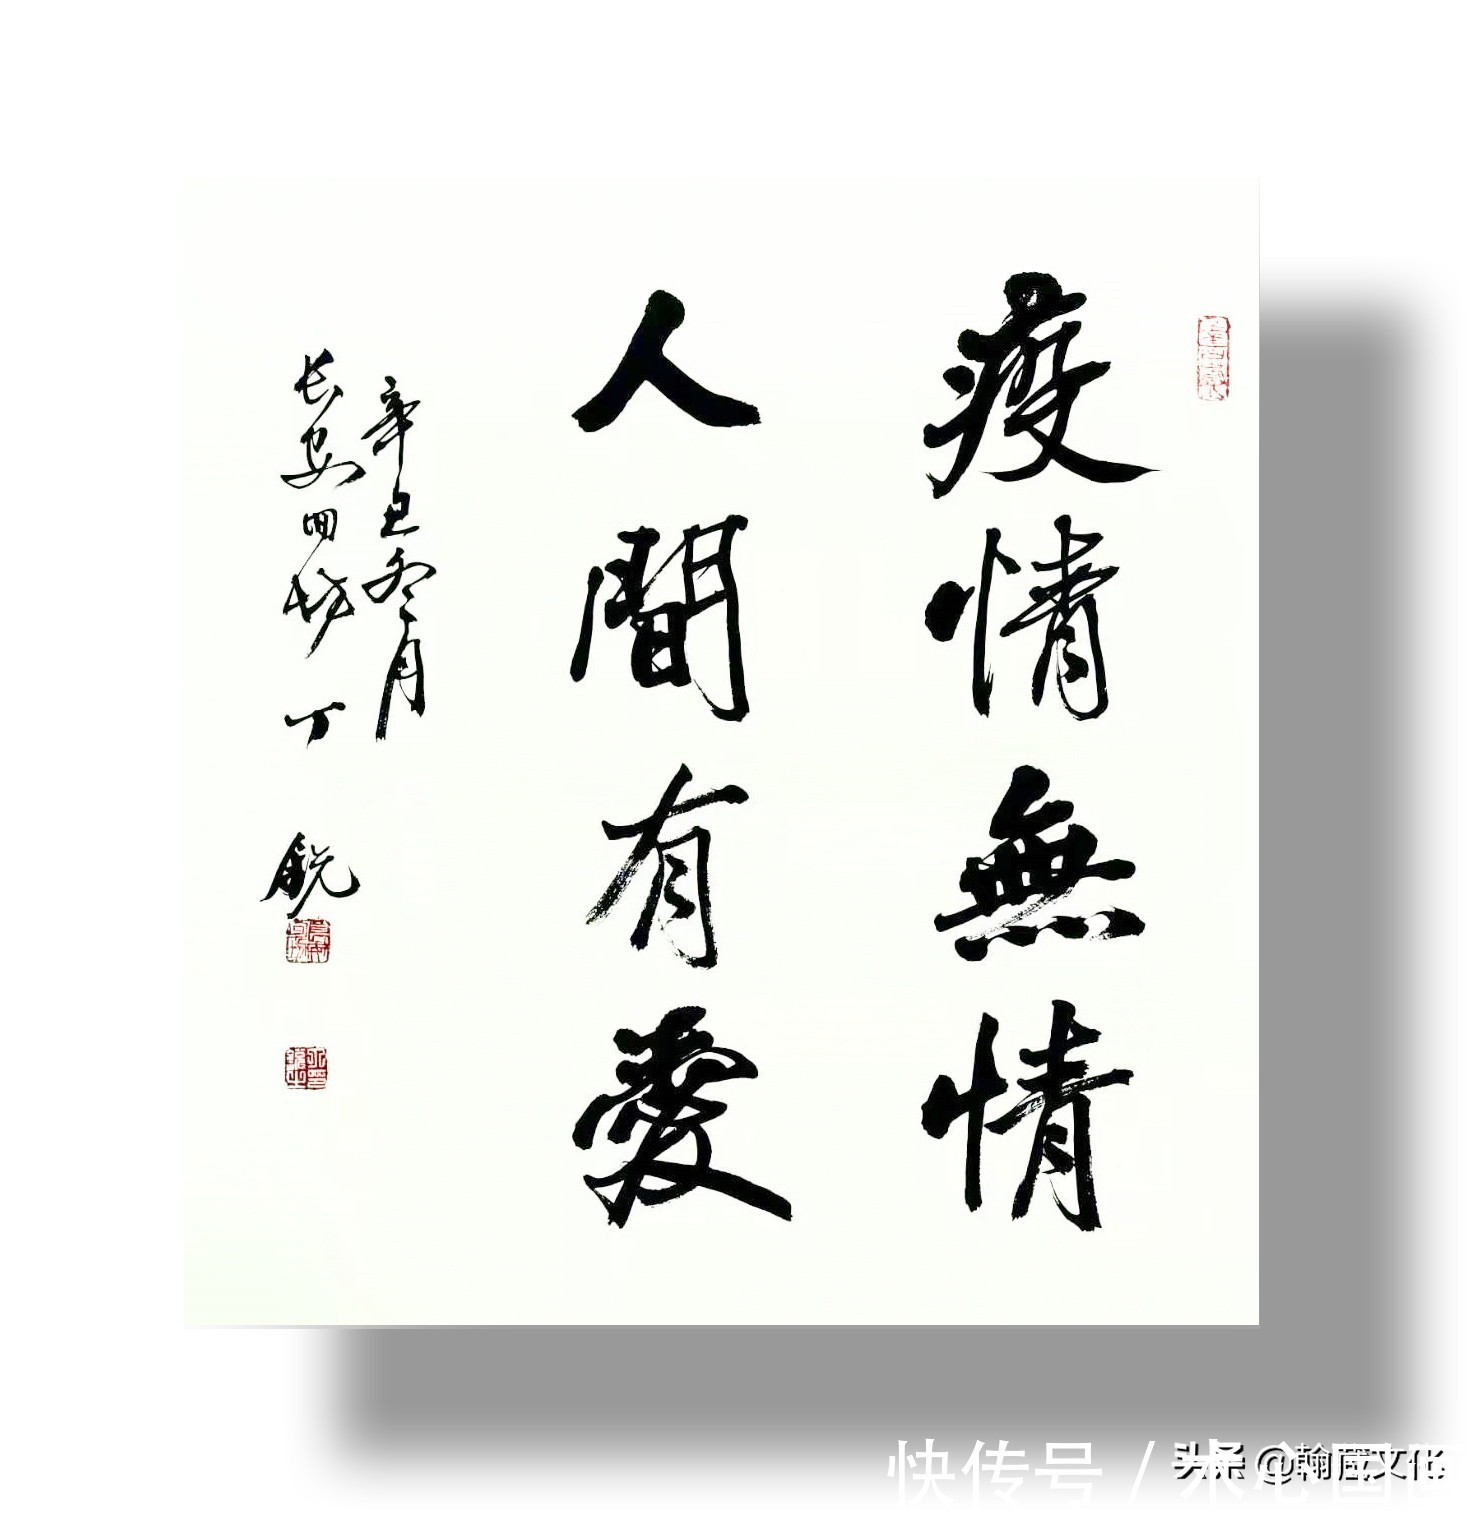 疫情無情
人間有愛
辛丑冬月
长安回坊 丁锐
快传号 /
头条 @翰崴文化